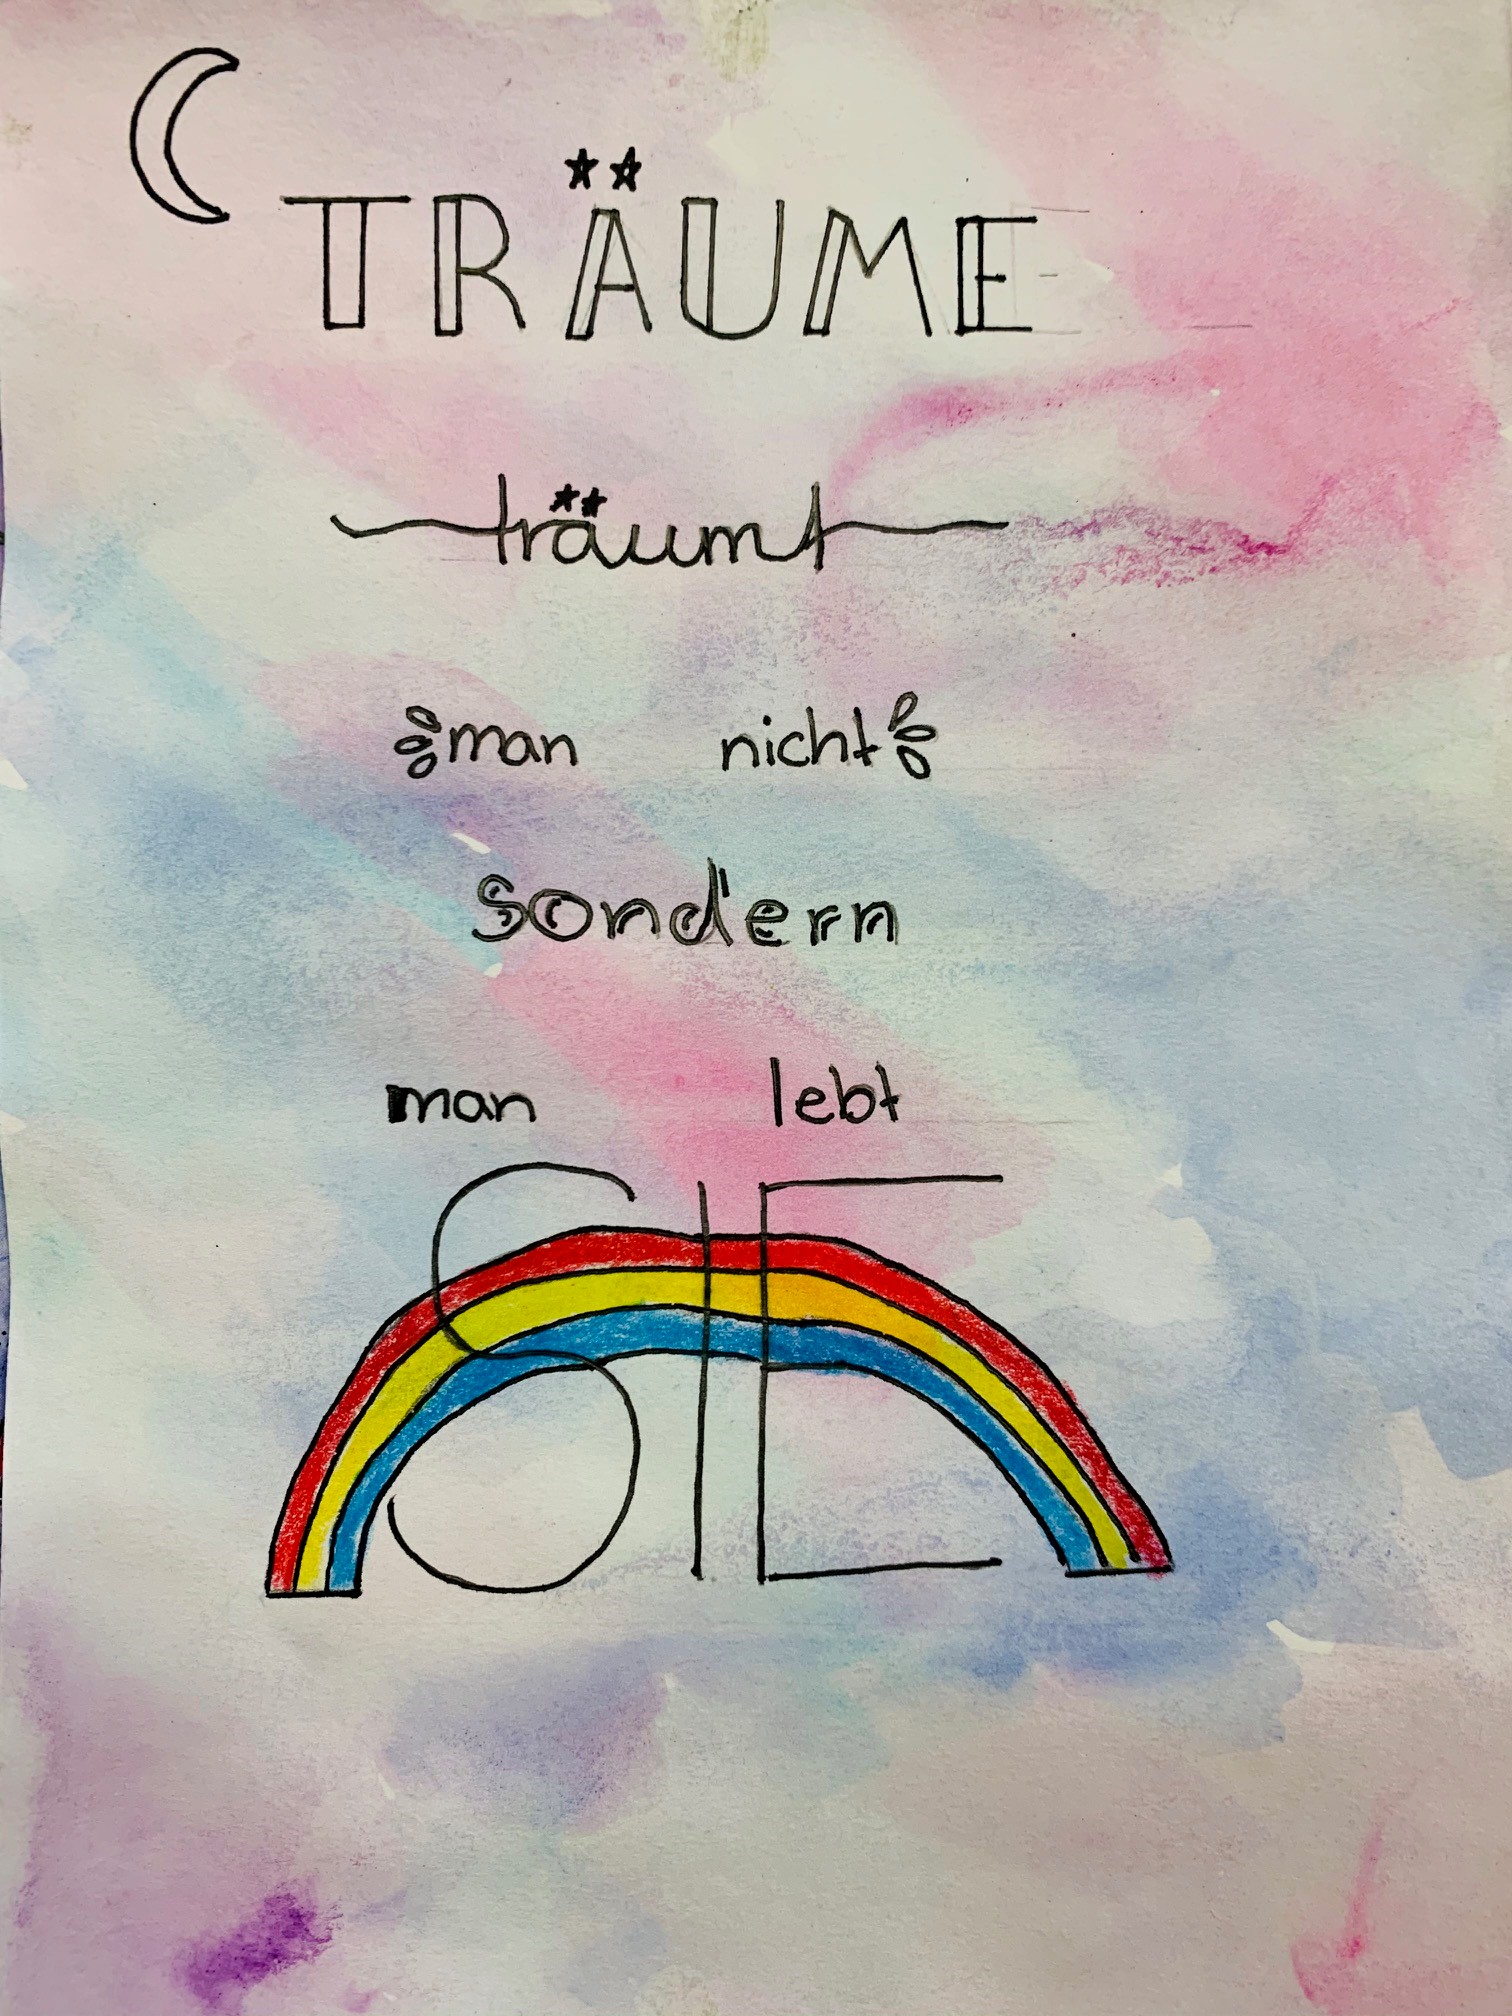 TRÄUME
träumt
man nicht
sondern
man lebt
SIE